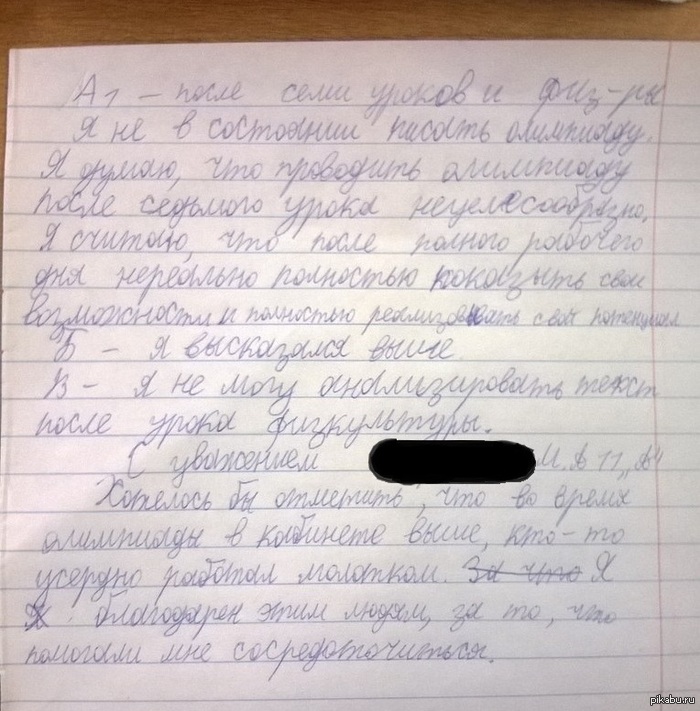 А1 – после семи уроков и физ-ры
Я не в состоянии писать олимпиаду.
Я думаю, что проводить олимпиаду
после седьмого урока нецелесообразно.
Я считаю, что после полного рабочего
дня нереально полностью показыть свои
возможности и полностью реализовывать свой потенциал
Б – я высказался выше
В – я не могу анализировать текст
после урока физкультуры.
С уважением М.А 11 „А"
Хотелось бы отметить, что во время
олимпиады в кабинете выше, кто-то
усердно работал молотком. За что Я
Я благодарен этим людям, за то, что
помогали мне сосредоточиться.
pikabu.ru